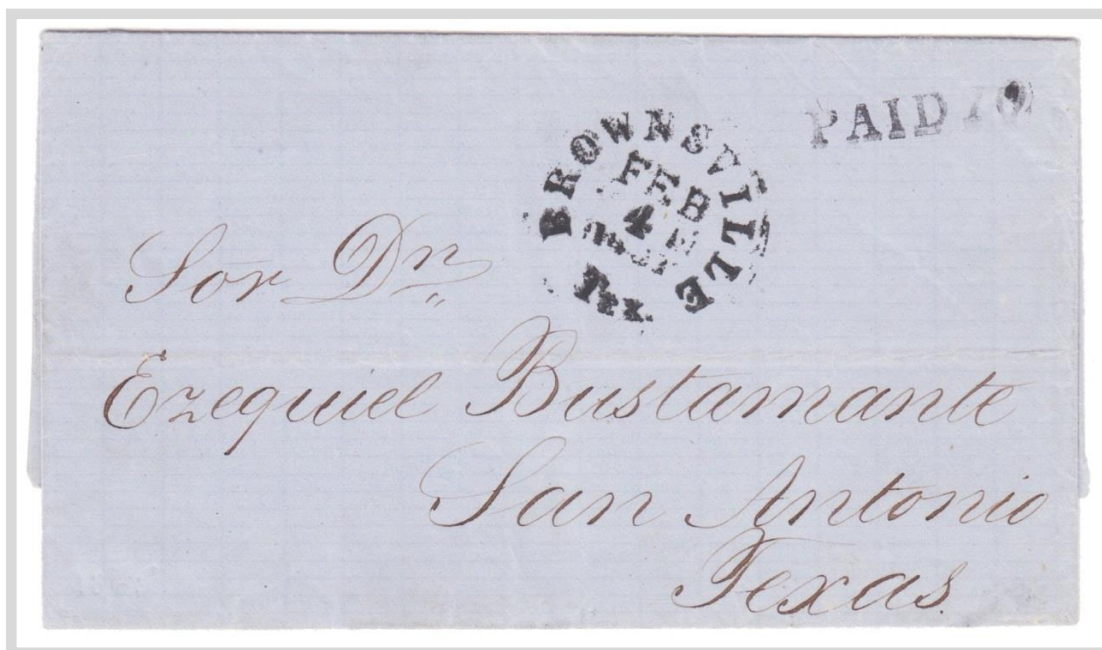 PAID 10
BROWNSVILLE
FEB
4
Tex.
Sor Dn
Ezequiel Bustamante
San Antonio
Texas.